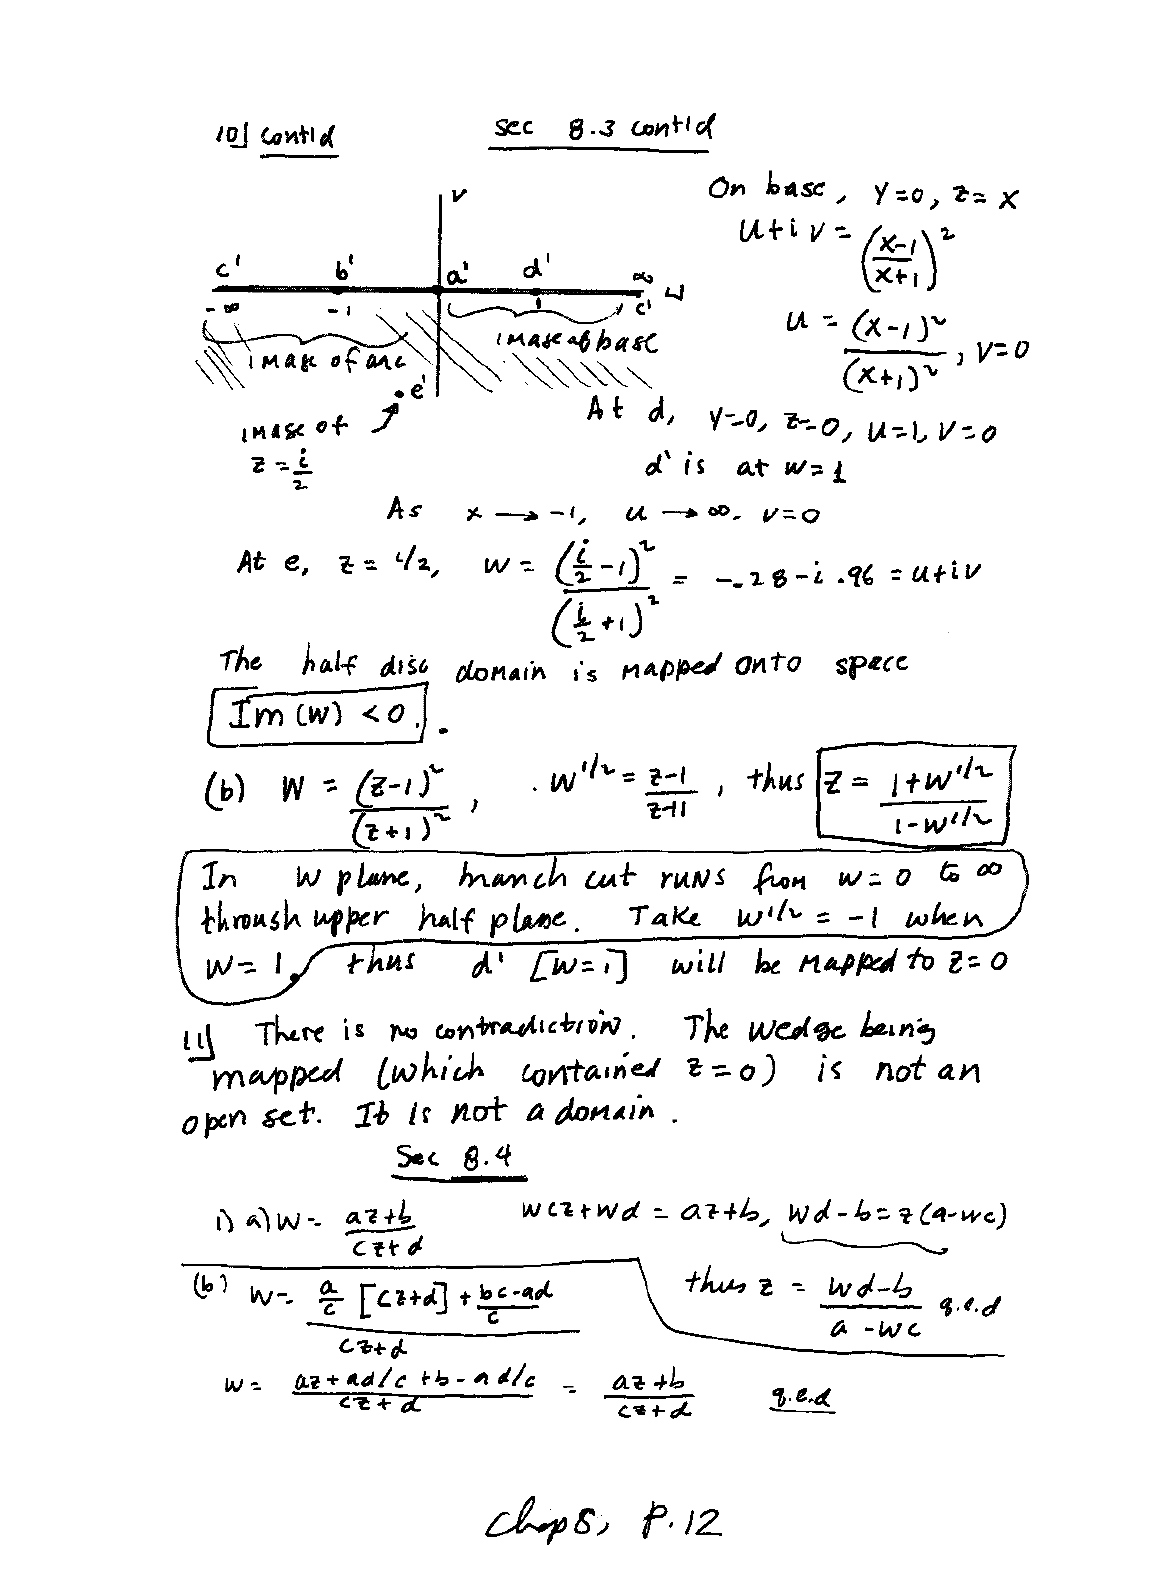 10] cont'd
sec 8.3 cont'd
On base, Y=0, z=x
u+iv = ((x-1)/(x+1))^2
u = (x-1)^2/(x+1)^2, v=0
v
c' b' a' d' ∞ u
-∞ -1 1 c'
image of arc
image of base
e'
image of
z = i/2
At d, Y=0, z=0, u=1, v=0
d' is at w=1
As x → -1, u → ∞. v=0
At e, z = i/2, w = (i/2 -1)^2/(i/2 +1)^2 = -.28-i .96 = u+iv
The half disc domain is mapped onto space
Im(w) <0.
(b) W = (z-1)^2/(z+1)^2, w^1/2 = z-1/z+1, thus z = 1+w^1/2/1-w^1/2
In W plane, branch cut runs from w=0 to ∞
through upper half plane. Take w^1/2 = -1 when
w=1, thus d' [w=1] will be mapped to z=0
11] There is no contradiction. The wedge being
mapped (which contained z=0) is not an
open set. It is not a domain.
Sec 8.4
1) a) W= az+b/cz+d wcz+wd = az+b, wd-b=z(a-wc)
thus z = wd-b/a-wc q.e.d
(b) W= a/c [cz+d] + bc-ad/c / cz+d
w = az+ad/c +b-ad/c / cz+d = az+b/cz+d q.e.d
Chap 8, P. 12